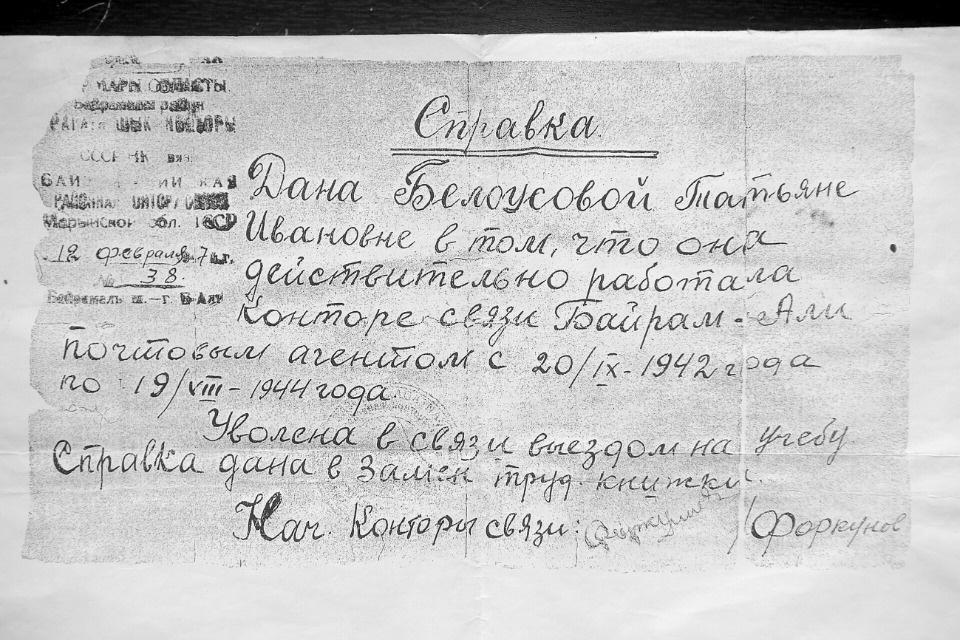 МАРЫ ОБЛАСТЫ
СССР НК
РАЙОННАЯ КОНТОРА СВЯЗИ
Марыйской обл. ТССР
12 февраля 7 г.
№ 38.
Справка.
Дана Белоусовой Татьяне
Ивановне в том, что она
действительно работала
Конторе связи Байрам-Али
почтовым агентом с 20/IX-1942 года
по 19/VIII-1944 года
Уволена в связи выездом на учебу
Справка дана в замен труд. книжки.
Нач. Конторы связи: /Форкунов